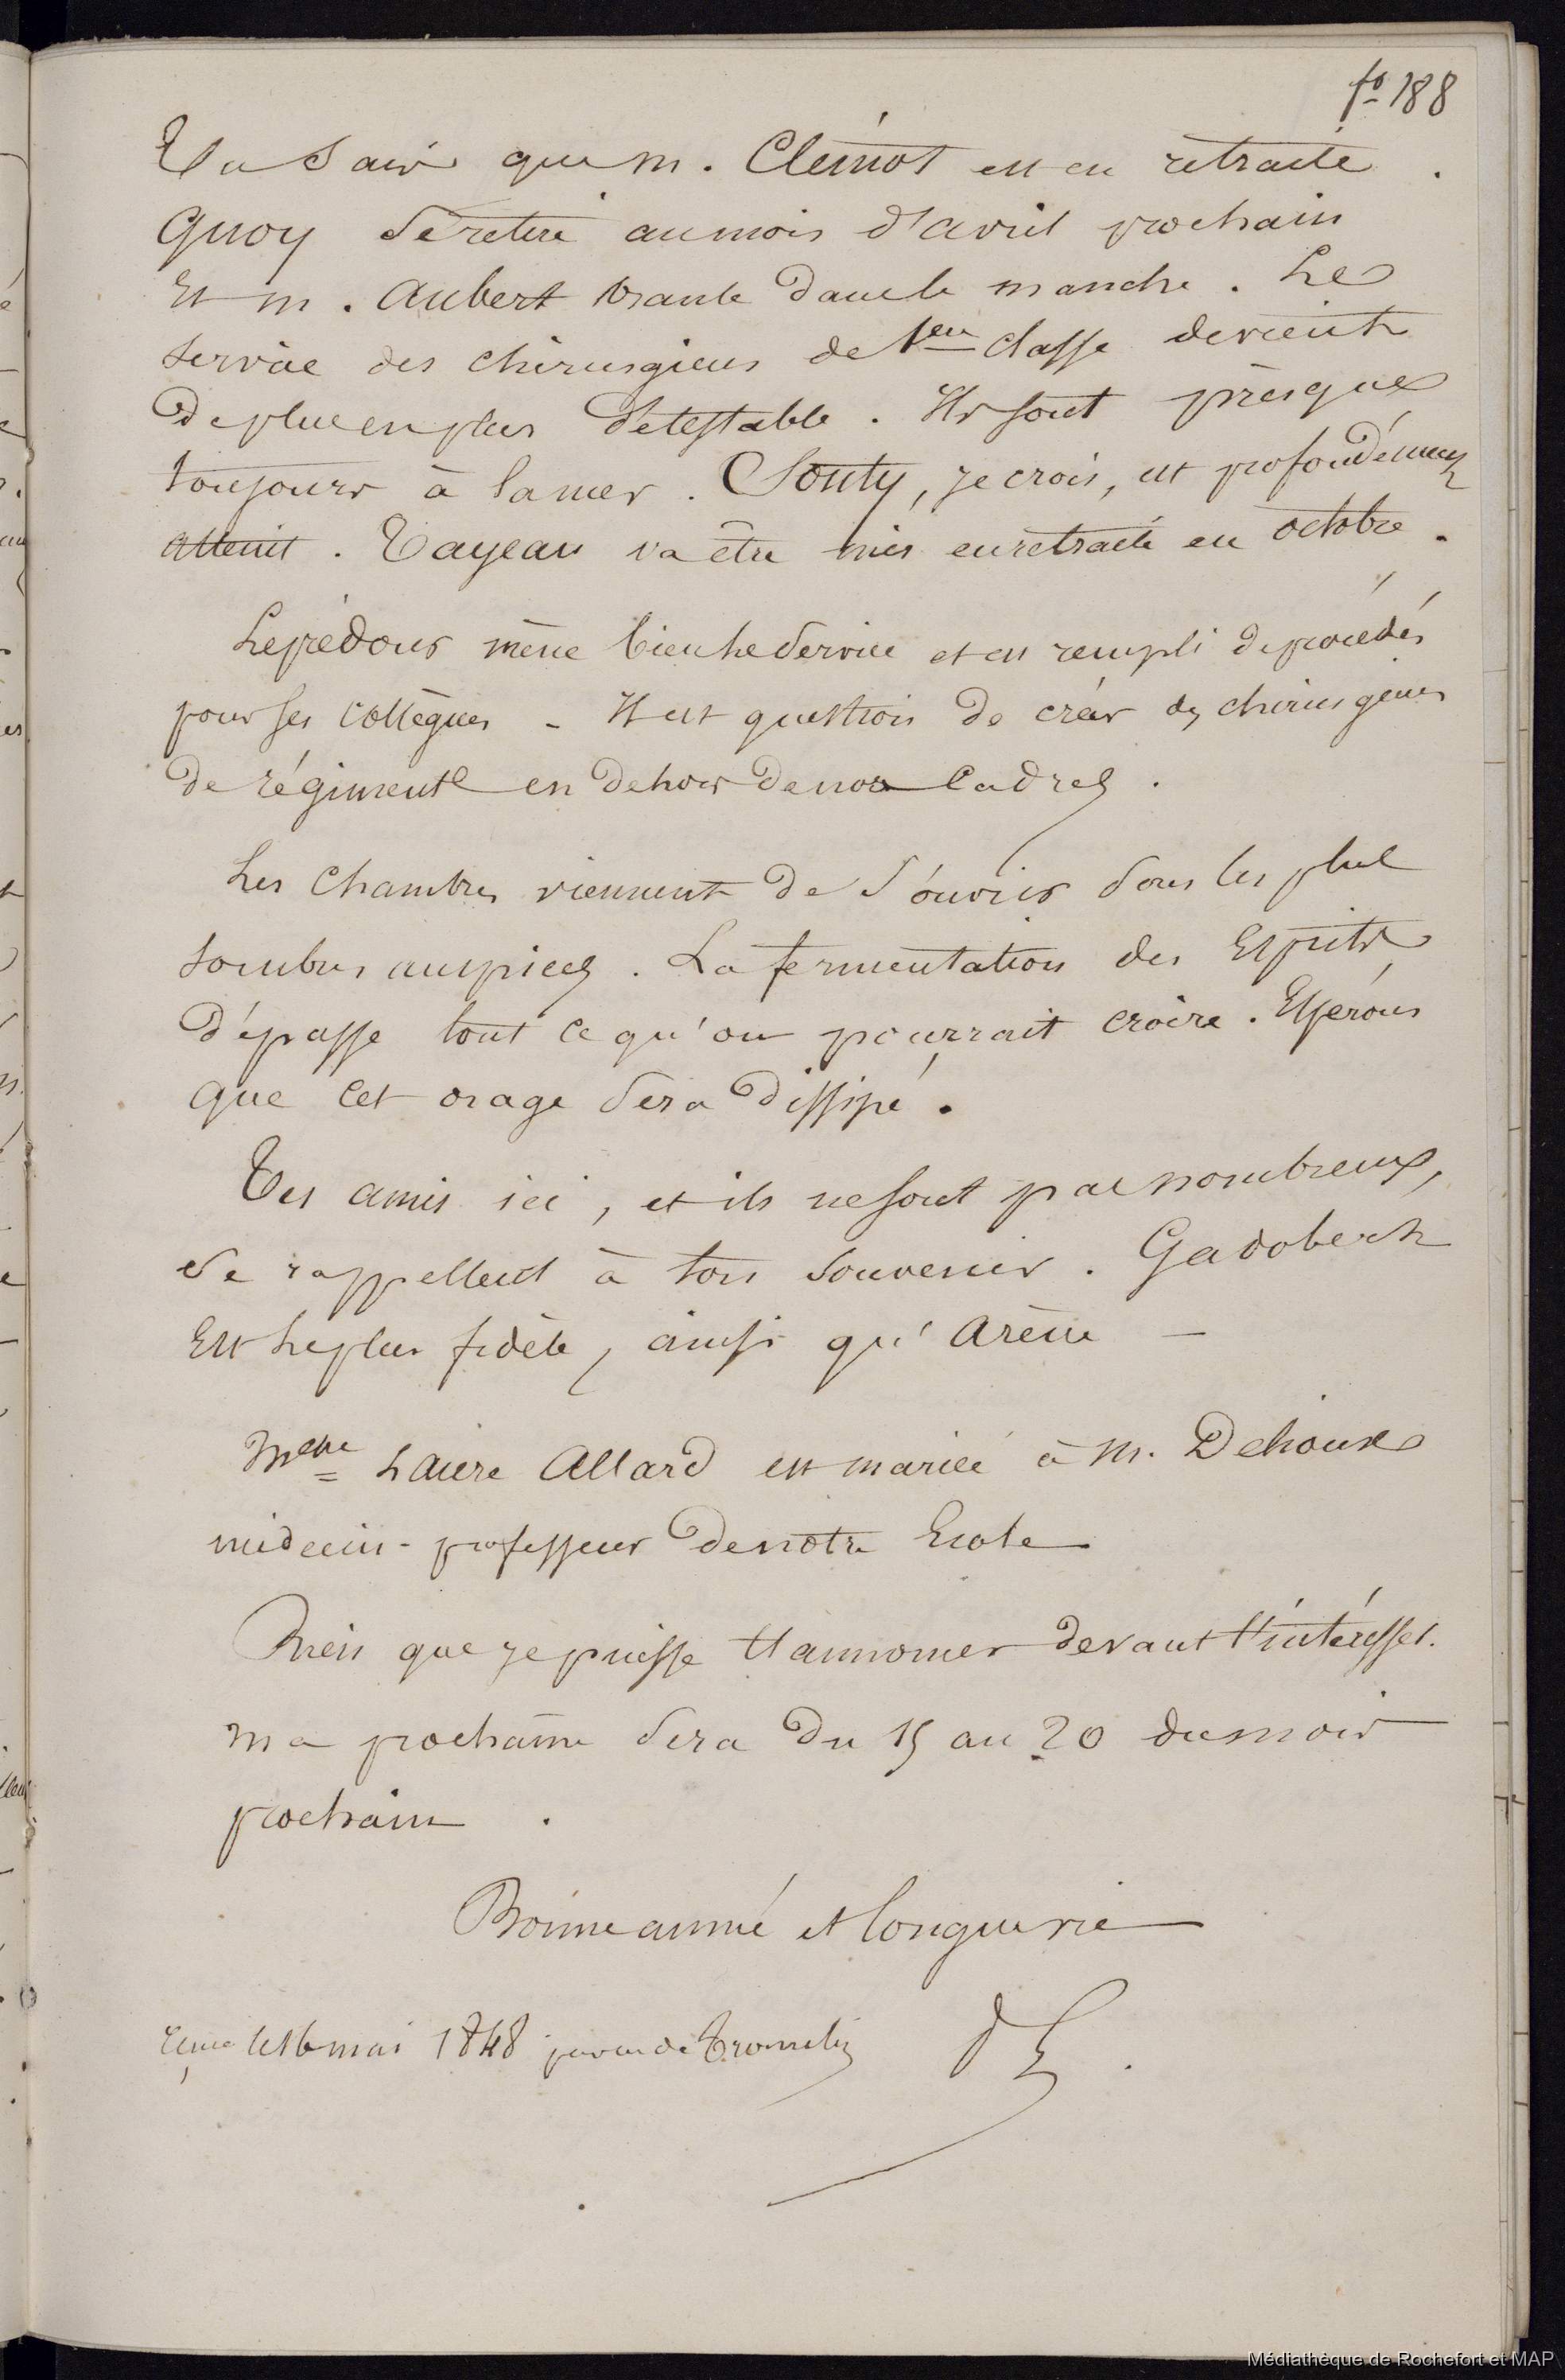 fo 188
Tu sais que m. Clémot est en retraite.
Quoy se retire au mois d'avril prochain
Et m. Aubert branle dans le manche. Le
service des chirurgiens de 1ere classe devient
de plus en plus détestable. Ils sont presque
toujours à la mer. Souty, je crois, est profondément
atteint. Tayeau va être mis en retraite en octobre.
Leprédour mène bien le service et est rempli de procédés
pour ses collègues - Il est question de créer des chirurgiens
de régiments en dehors de nos cadres.
Les chambres viennent de s'ouvrir sous les plus
sombres auspices. La fermentation des Esprits
dépasse tout ce qu'on pourrait croire. Espérons
que cet orage sera dissipé.
Tes amis ici, et ils ne sont pas nombreux,
se rappellent à ton souvenir. Gadobert
Est le plus fidèle, ainsi qu'Arène -
Melle Laure Allard est mariée à M. Dehoux
médecin-professeur de notre Ecole
Rien que je puisse t'annoncer devant t'intéresser.
ma prochaine sera du 15 au 20 du mois
prochain.
Bonne année et longue vie
Reçue le 16 mai 1848 par m. de Tromelin